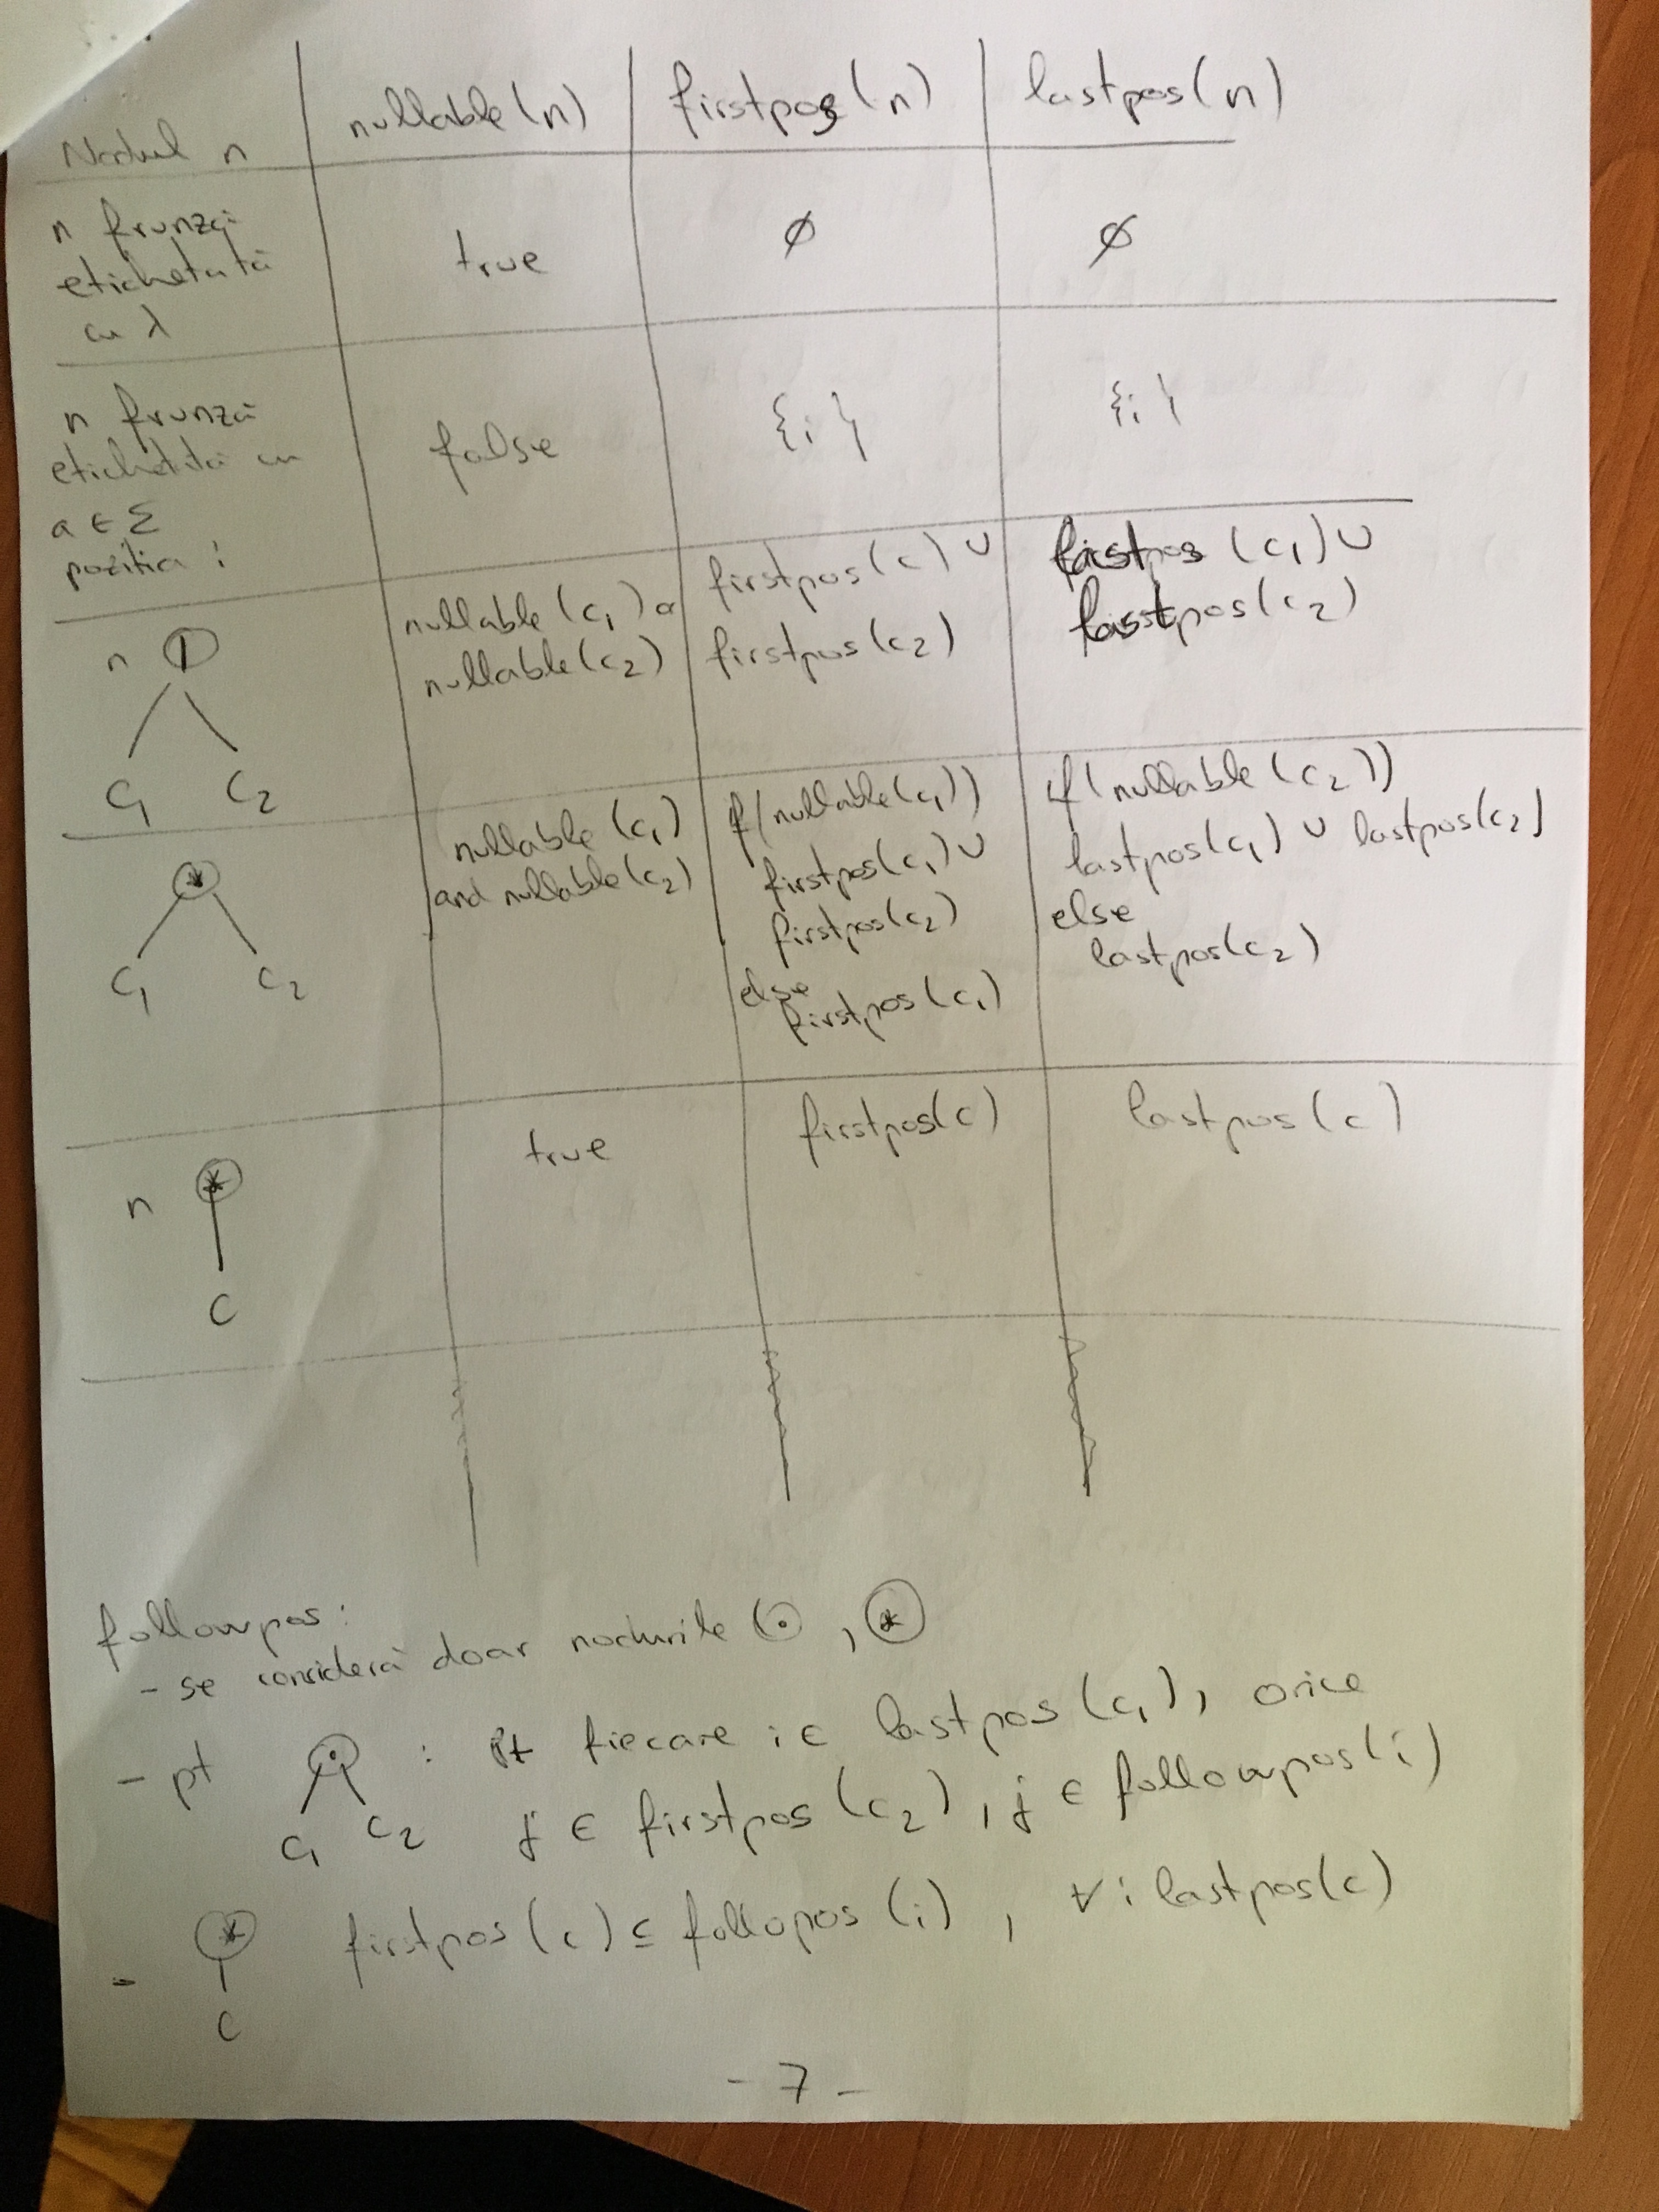 Nodul n nullable(n) firstpos(n) lastpos(n)
n frunză
etichetată
cu λ
true ∅ ∅
n frunză
etichetată cu
a ∈ Σ
poziția i
false {i} {i}
n |
c1 c2
nullable(c1) or
nullable(c2)
firstpos(c) ∪
firstpos(c2)
(c1) ∪
lastpos(c2)
*
c1 c2
nullable(c1)
and nullable(c2)
if(nullable(c1))
firstpos(c1) ∪
firstpos(c2)
else
firstpos(c1)
if(nullable(c2))
lastpos(c1) ∪ lastpos(c2)
else
lastpos(c2)
n *
c
true firstpos(c) lastpos(c)
followpos:
- se consideră doar nodurile ·, *
- pt · : pt fiecare i ∈ lastpos(c1), orice
c1 c2 j ∈ firstpos(c2), j ∈ followpos(i)
- * firstpos(c) ⊆ follopos(i), ∀ i lastpos(c)
c
- 7 -